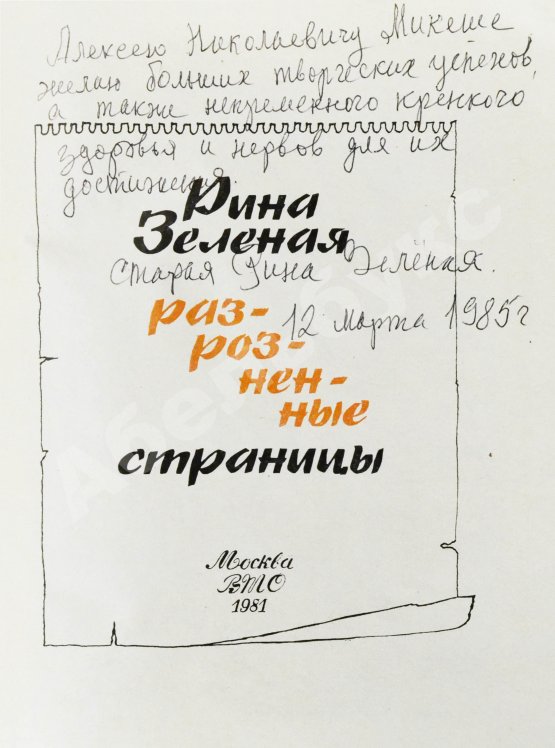 Алексею Николаевичу Микеше
желаю больших творческих успехов,
а также непременного крепкого
здоровья и нервов для их
достижения
Рина
Зеленая
Старая Рина Зелёная.
раз-
12 марта 1985 г
роз-
нен-
ные
страницы
Москва
ВТО
1981